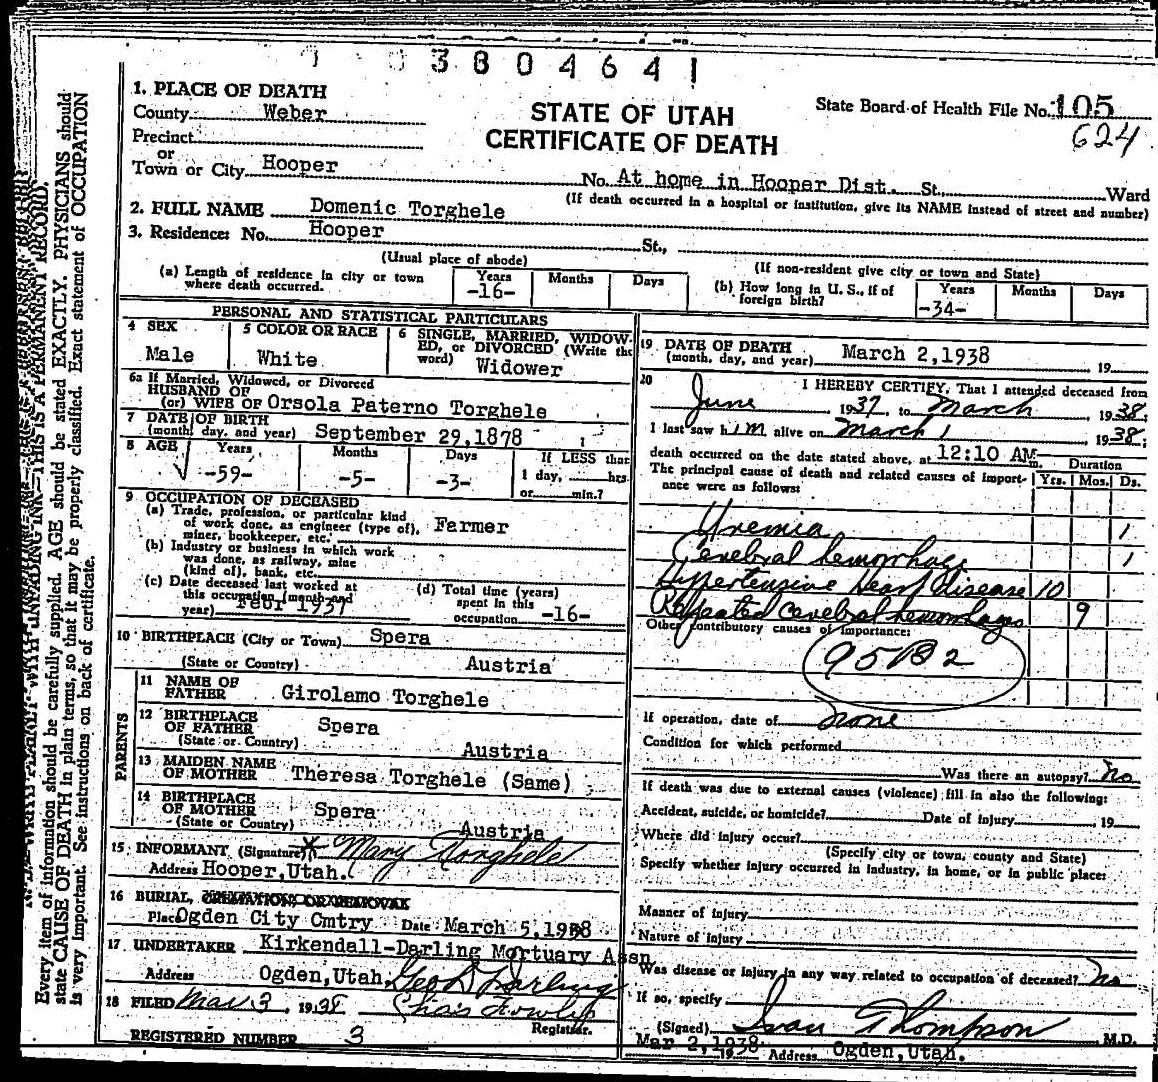 3804641
1. PLACE OF DEATH
County Weber
Precinct
or
Town or City Hooper
STATE OF UTAH
CERTIFICATE OF DEATH
State Board of Health File No. 105
624
No. At home in Hooper Dist. St. Ward
(If death occurred in a hospital or institution, give its NAME instead of street and number)
2. FULL NAME Domenic Torghele
3. Residence: No. Hooper St.,
(Usual place of abode)
(If non-resident give city or town and State)
(a) Length of residence in city or town where death occurred. Years -16- Months Days
(b) How long in U. S., if of foreign birth? Years -34- Months Days
PERSONAL AND STATISTICAL PARTICULARS
4 SEX
Male
5 COLOR OR RACE
White
6 SINGLE, MARRIED, WIDOWED, or DIVORCED (Write the word) Widower
6a If Married, Widowed, or Divorced
HUSBAND OF
(or) WIFE OF Orsola Paterno Torghele
7 DATE OF BIRTH
(month, day, and year) September 29,1878
8 AGE Years Months Days If LESS than
-59- -5- -3- 1 day, hrs.
or min.?
9 OCCUPATION OF DECEASED
(a) Trade, profession, or particular kind
of work done, as engineer (type of), Farmer
miner, bookkeeper, etc.
(b) Industry or business in which work
was done, as railway, mine
(kind of), bank, etc.
(c) Date deceased last worked at
this occupation (month and
year) Febr 1937
(d) Total time (years)
spent in this
occupation -16-
10 BIRTHPLACE (City or Town) Spera
(State or Country) Austria
PARENTS
11 NAME OF
FATHER Girolamo Torghele
12 BIRTHPLACE
OF FATHER Spera
(State or Country) Austria
13 MAIDEN NAME
OF MOTHER Theresa Torghele (Same)
14 BIRTHPLACE
OF MOTHER Spera
(State or Country) Austria
15 INFORMANT (Signature) X Mary Torghele
Address Hooper,Utah.
16 BURIAL, CREMATION, OR REMOVAL
Place Ogden City Cmtry Date March 5,1938
17 UNDERTAKER Kirkendall-Darling Mortuary Assn
Address Ogden,Utah. Geo D Darling
18 FILED Mar 3, 1938 Chas Fowler
Registrar.
REGISTERED NUMBER 3
19 DATE OF DEATH
(month, day, and year) March 2,1938 19
20 I HEREBY CERTIFY, That I attended deceased from
June, 1937, to March 1938.
I last saw him alive on March 1 1938;
death occurred on the date stated above, at 12:10 AM m.
The principal cause of death and related causes of importance were as follows:
Duration
Yrs. Mos. Ds.
Uremia 1
Cerebral hemorrhage 1
Hypertensive Heart disease 10
Repeated Cerebral hemorrhages 9
Other contributory causes of importance:
95B2
If operation, date of none
Condition for which performed
Was there an autopsy? No
If death was due to external causes (violence) fill in also the following:
Accident, suicide, or homicide? Date of injury , 19
Where did injury occur?
(Specify city or town, county and State)
Specify whether injury occurred in industry, in home, or in public place:
Manner of injury
Nature of injury
Was disease or injury in any way related to occupation of deceased? No
If so, specify
(Signed) Ivan Thompson M.D.
Mar 2,1938 Address Ogden,Utah.
WITH UNFADING INK—THIS IS A PERMANENT RECORD.
Every item of information should be carefully supplied. AGE should be stated EXACTLY. PHYSICIANS should
state CAUSE OF DEATH in plain terms, so that it may be properly classified. Exact statement of OCCUPATION
is very important. See instructions on back of certificate.